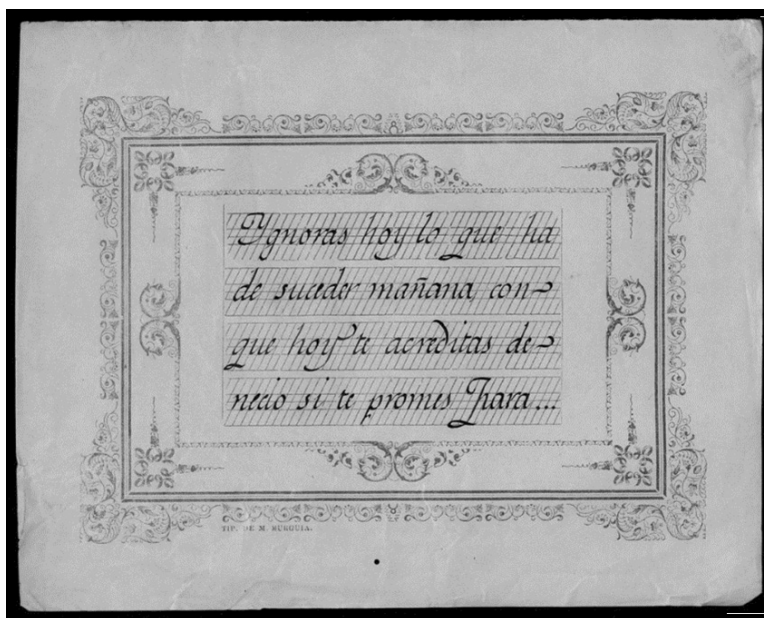 Ygnoras hoy lo que ha
de suceder mañana, con-
que hoy te acreditas de-
necio si te promes
TIP. DE M. MURGUIA.